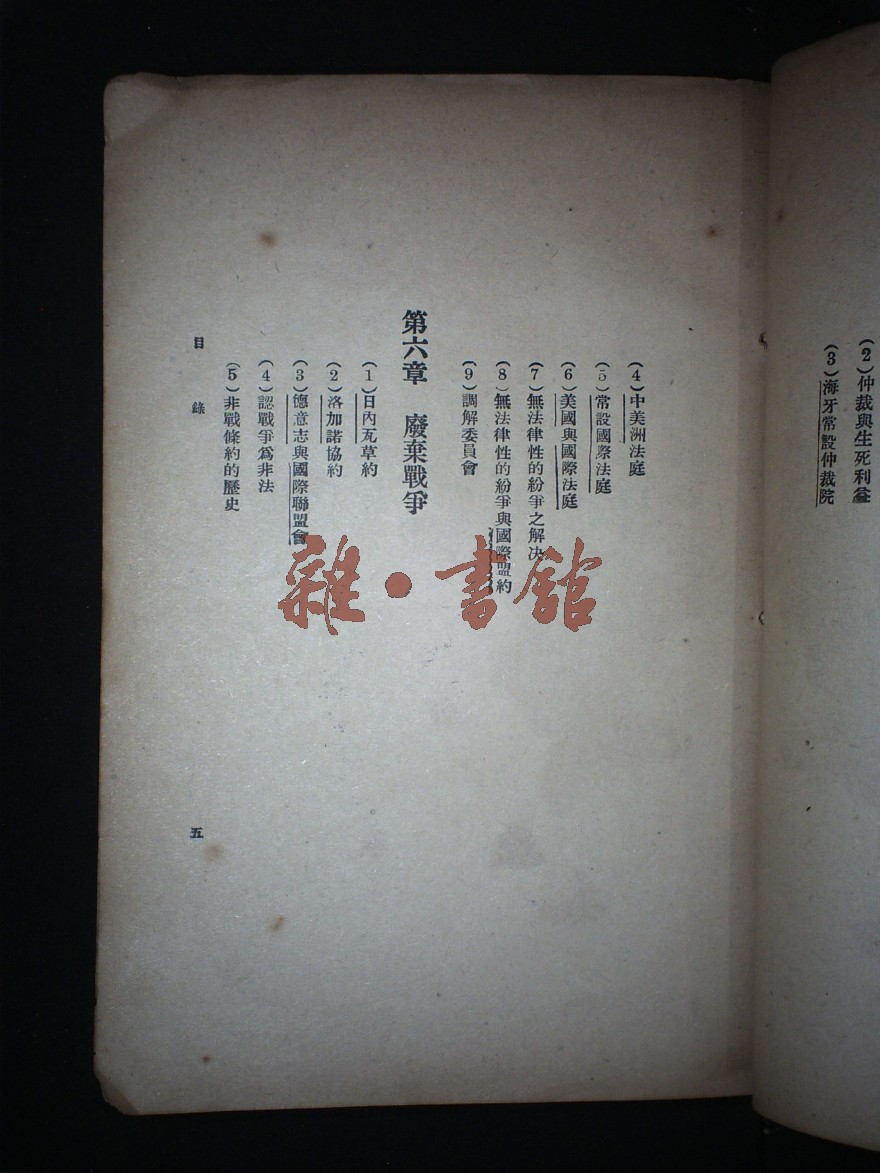 (2)仲裁與生死利益
(3)海牙常設仲裁院
(4)中美洲法庭
(5)常設國際法庭
(6)美國與國際法庭
(7)無法律性的紛爭之解決
(8)無法律性的紛爭與國際盟約
(9)調解委員會
第六章 廢棄戰爭
(1)日內瓦草約
(2)洛加諾協約
(3)德意志與國際聯盟會
(4)認戰爭爲非法
(5)非戰條約的歷史
目錄
五
雜·書館